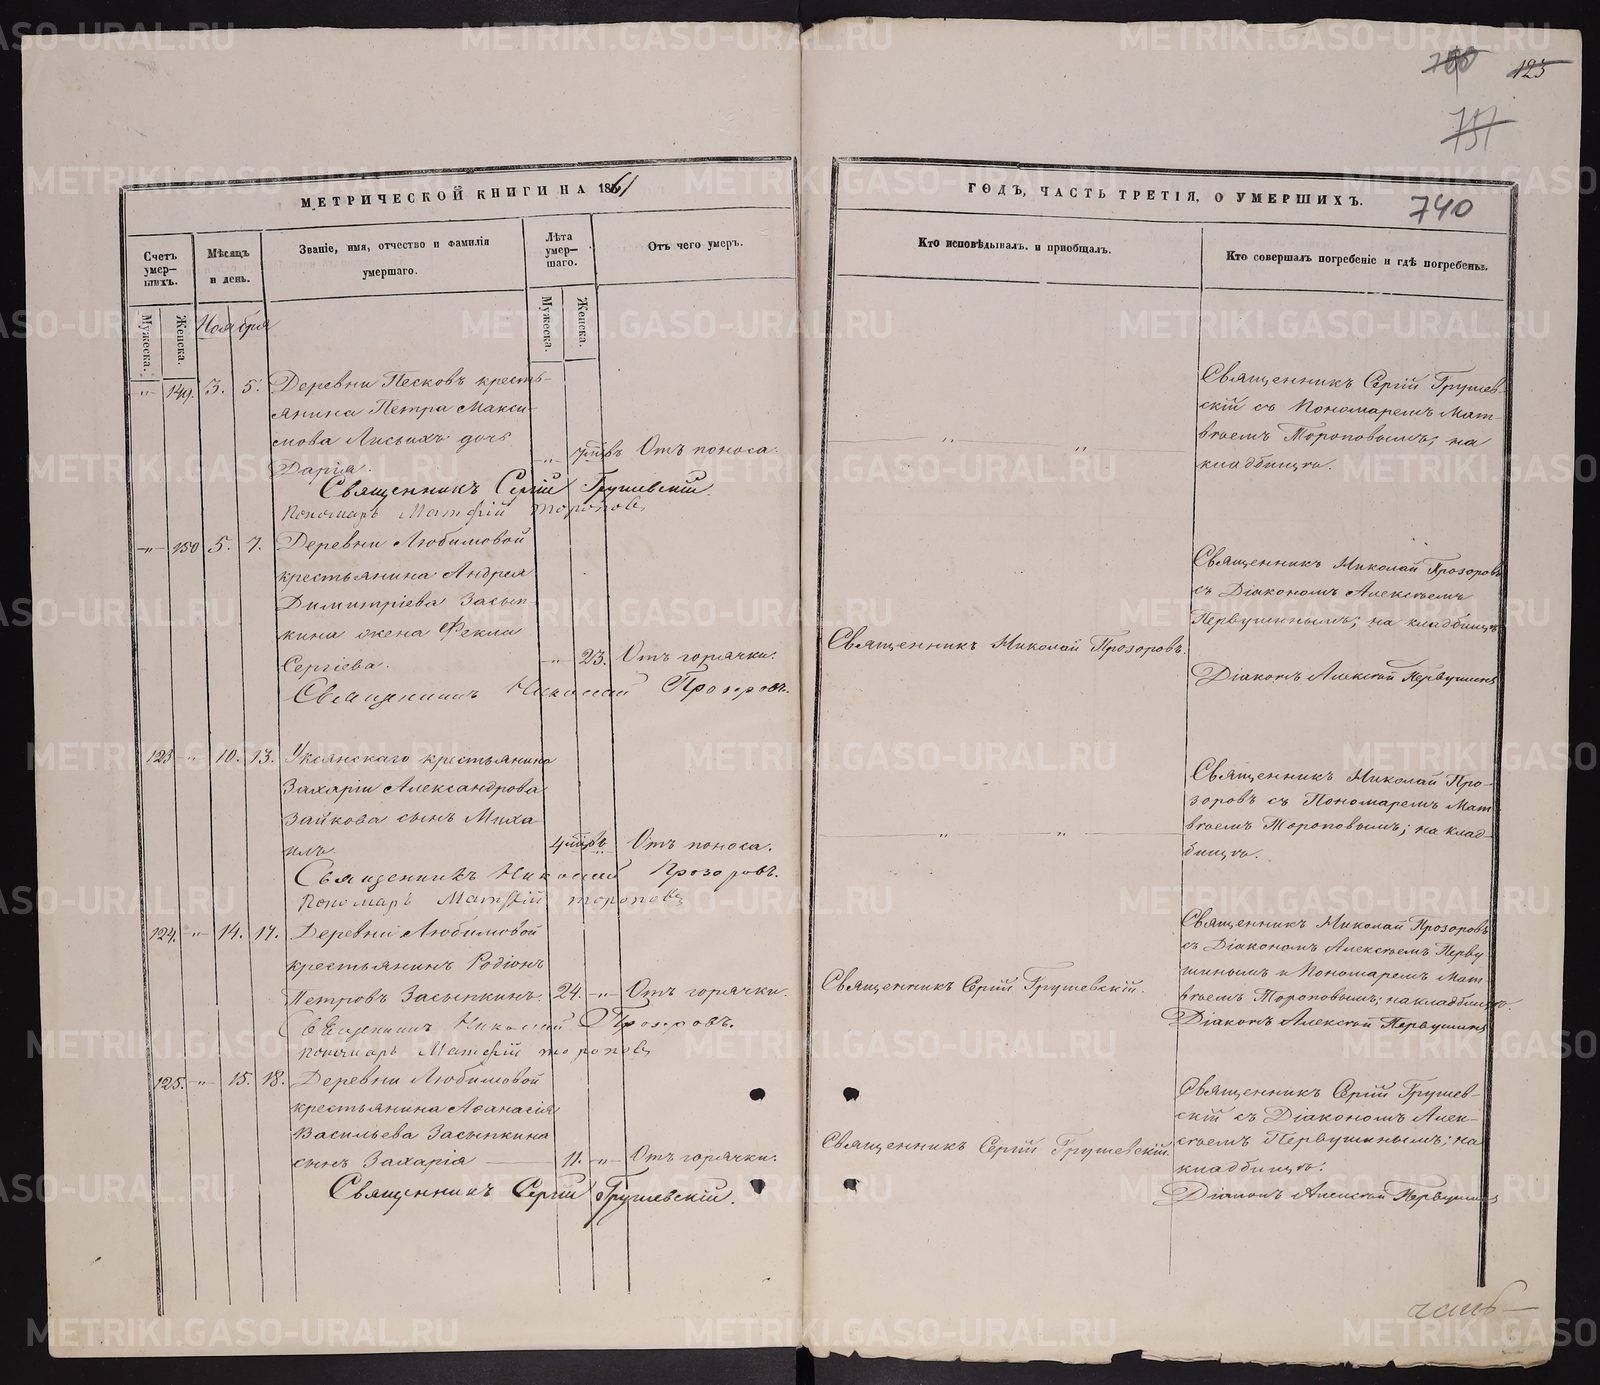 780 125
757
МЕТРИЧЕСКОЙ КНИГИ НА 1861
ГОДЪ, ЧАСТЬ ТРЕТІЯ, О УМЕРШИХЪ.
740
Счетъ умер-
шихъ.
Мѣсяцъ
и день.
Званіе, имя, отчество и фамилія
умершаго.
Лѣта
умер-
шаго.
Отъ чего умеръ.
Кто исповѣдывалъ и приобщалъ.
Кто совершалъ погребеніе и гдѣ погребены.
Мужеска.
Женска.
Ноября
Мужеска.
Женска.
-"- 149. 3. 5. Деревни Песковъ кресть-
янина Петра Макси-
мова Лисьихъ дочь
Дарія. -"- 7 мцовъ Отъ поноса.
Священникъ Сергій Грушевскій.
Пономарь Матѳій Тороповъ
" "
Священникъ Сергій Грушев-
скій съ Пономаремъ Мат-
вѣемъ Тороповымъ; на
кладбищѣ.
-"- 150 5. 7. Деревни Любимовой
крестьянина Андрея
Димитріева Засып-
кина жена Ѳекла
Сергіева. -"- 23. Отъ горячки.
Священникъ Николай Прозоровъ.
Священникъ Николай Прозоровъ.
Священникъ Николай Прозоровъ
съ Діакономъ Алексѣемъ
Первушинымъ; на кладбищѣ
Діаконъ Алексѣй Первушинъ
123 -"- 10. 13. Уксянскаго крестьянина
Захаріи Александрова
Зайкова сынъ Миха-
илъ 4 мцовъ " Отъ поноса.
Священникъ Николай Прозоровъ.
Пономарь Матѳій Тороповъ
" "
Священникъ Николай Про-
зоровъ съ Пономаремъ Мат
вѣемъ Тороповымъ; на клад-
бищѣ.
124. -"- 14. 17. Деревни Любимовой
крестьянинъ Родіонъ
Петровъ Засыпкинъ. 24. -"- Отъ горячки.
Священникъ Николай Прозоровъ.
Пономарь Матѳій Тороповъ
Священникъ Сергій Грушевскій.
Священникъ Николай Прозоровъ
съ Діакономъ Алексѣемъ Перву
шинымъ и Пономаремъ Мат
вѣемъ Тороповымъ; на кладбищѣ.
Діаконъ Алексѣй Первушинъ
125. -"- 15. 18. Деревни Любимовой
крестьянина Аѳанасія
Васильева Засыпкина
сынъ Захарія 11. -"- Отъ горячки.
Священникъ Сергій Грушевскій.
Священникъ Сергій Грушевскій.
Священникъ Сергій Грушев-
скій съ Діакономъ Алек-
сѣемъ Первушинымъ; на
кладбищѣ.
Діаконъ Алексѣй Первушинъ
METRIKI.GASO-URAL.RU